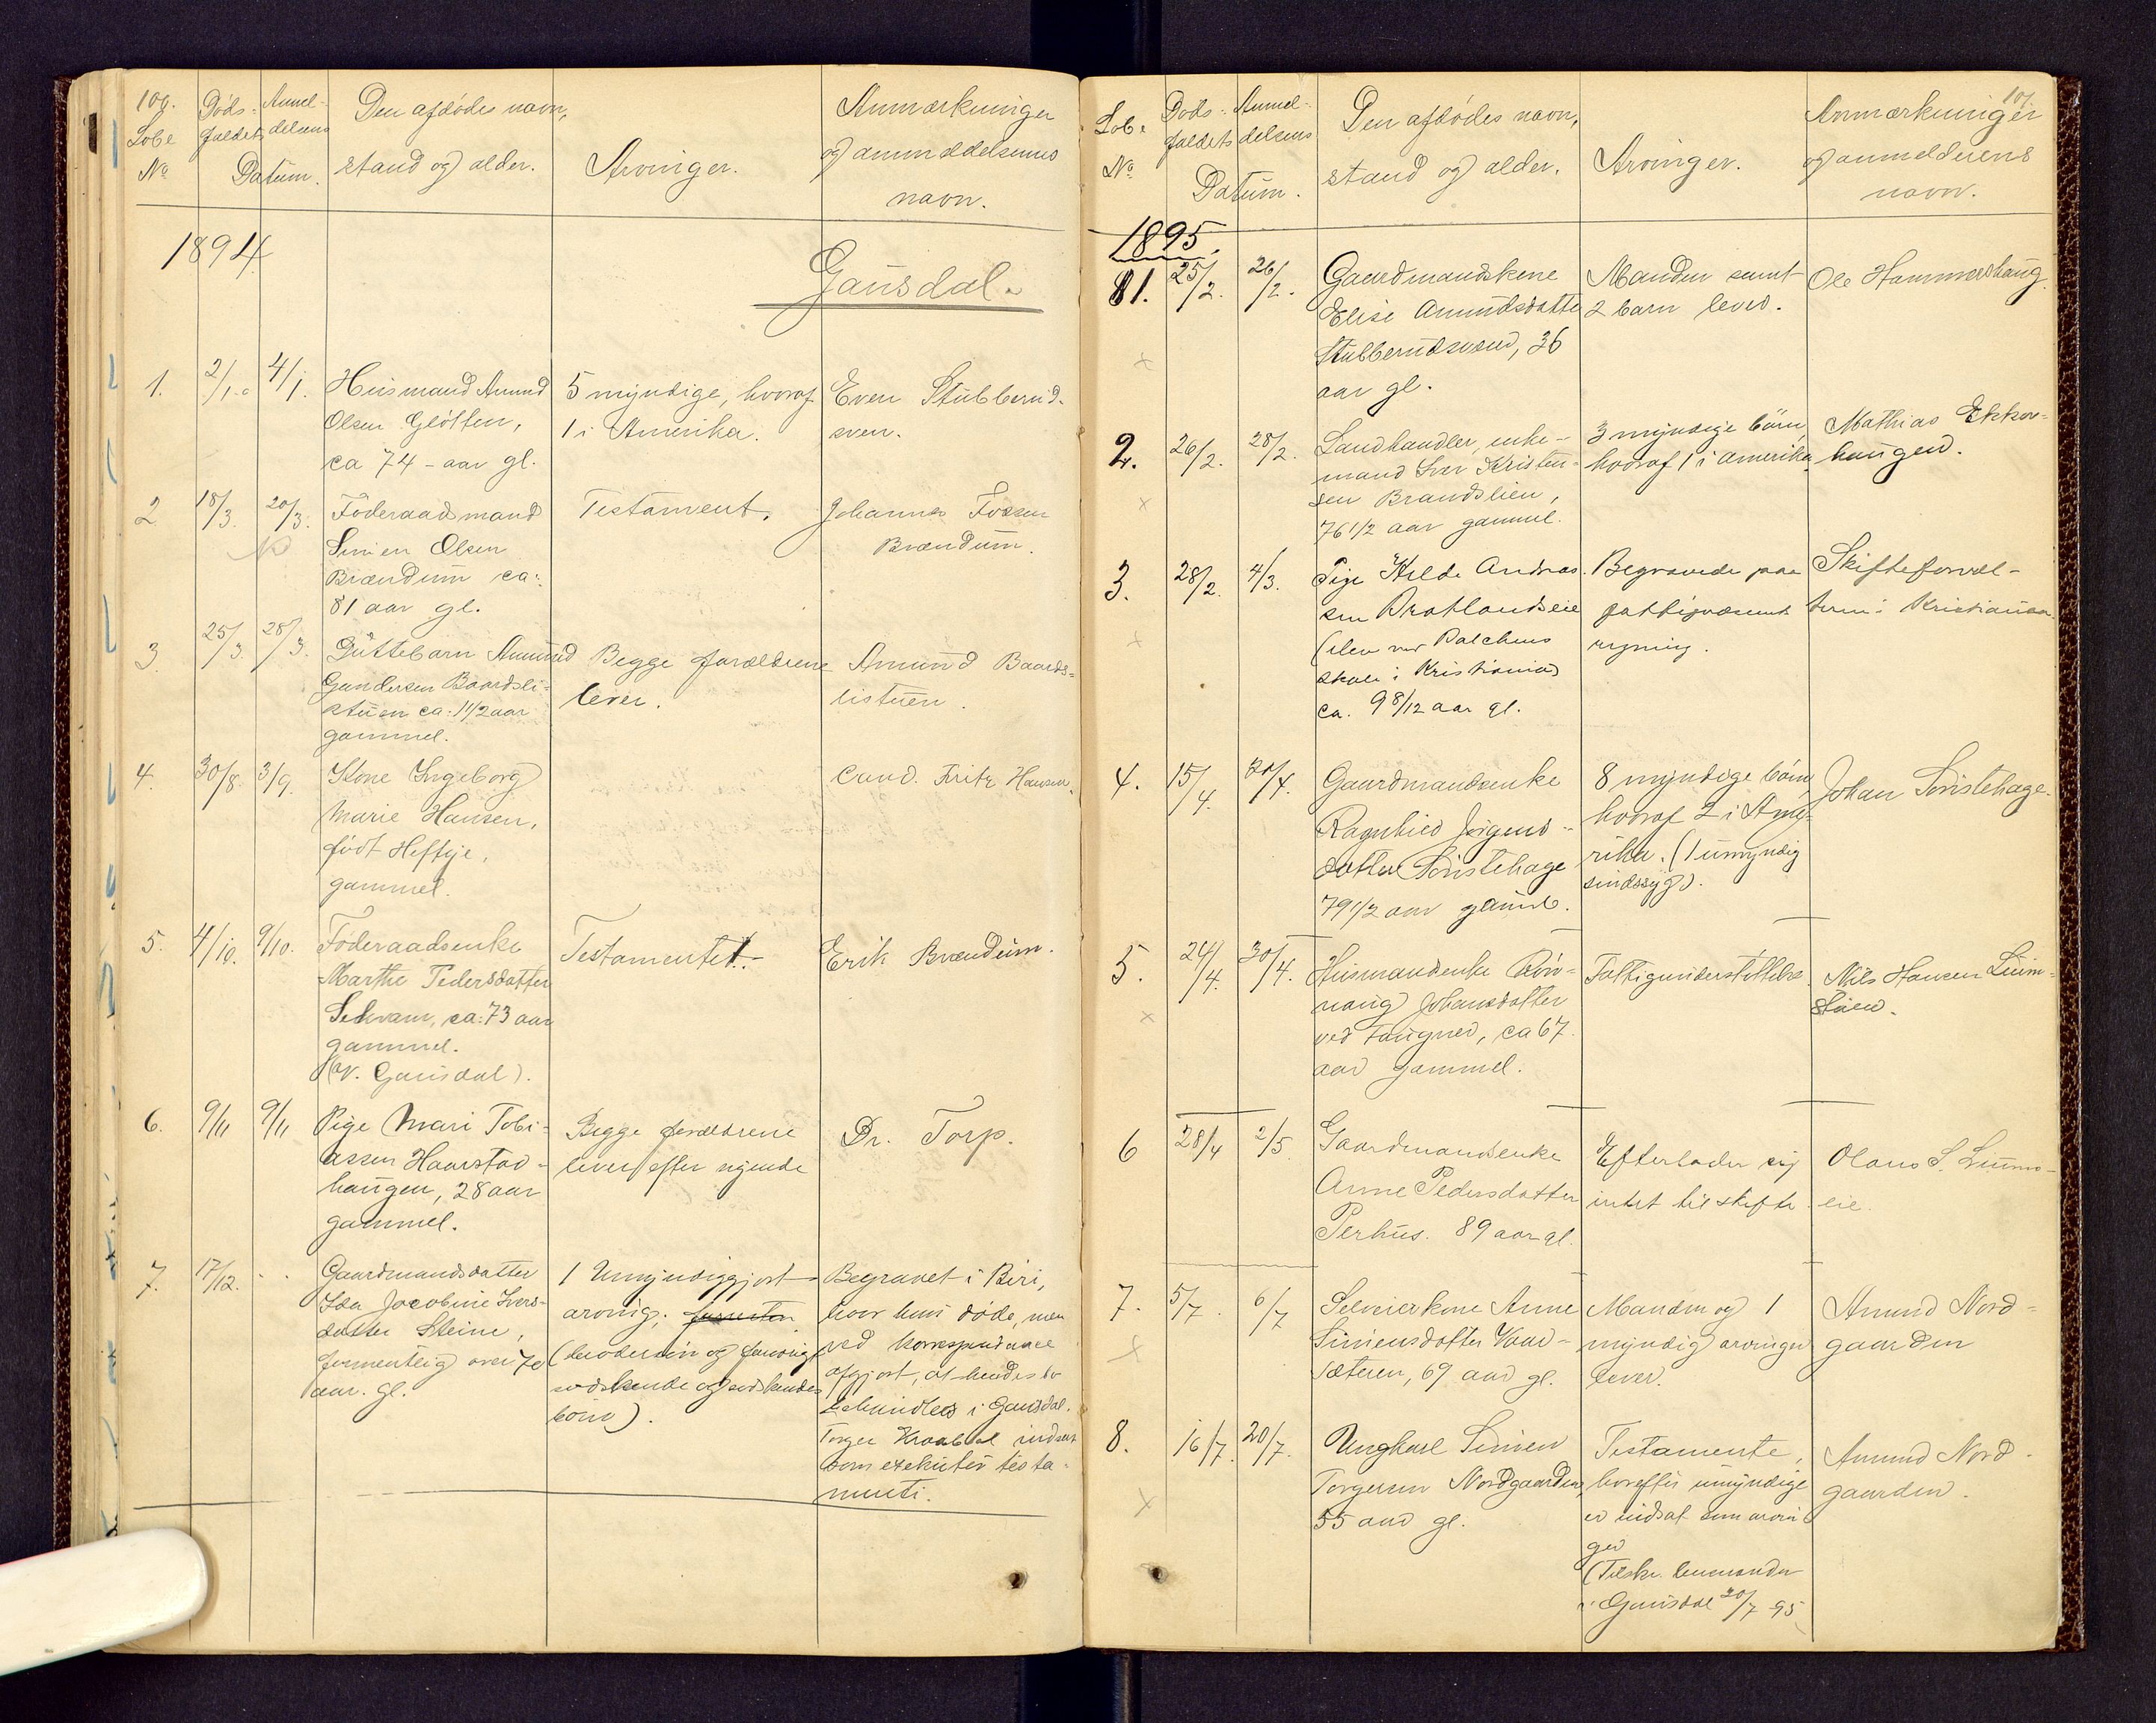 100.
Løbe No
Døds-faldets
Anmel-delsens
Datum.
Den afdødes navn,
stand og alder.
Arvinger.
Anmærkninger
og anmeldelsens
navn.
1894
Gausdal.
1. 2/1. 4/1.
Husmand Amund
Olsen Gløtten,
ca 74 - aar gl.
5 myndige, hvoraf
1 i Amerika.
Even Stubberud-
sven.
2 18/3. 20/3.
Føderaadsmand
Simen Olsen
Brændum ca:
81 aar gl.
Testament.
Johannes Fossen
Brændum.
3. 25/3. 28/3.
Guttebarn Amund
Gundersen Baardsli-
stuen ca: 1 1/2 aar
gammel.
Begge forældrene
lever.
Amund Baards-
listuen.
4. 30/8. 3/9.
Kone Ingeborg
Marie Hansen,
født Heftye,
gammel.
Cand. Fritz Hansen.
5. 4/10. 9/10.
Føderaadsenke
Marthe Pedersdatter
Sekvam, ca: 73 aar
gammel.
(V. Gausdal).
Testamentet.
Erik Brændum.
6. 9/11 9/11
Pige Mari Tobi-
assen Haarstad-
haugen, 28 aar
gammel.
Begge forældrene
lever efter sigende
Dr. Torp.
7. 17/12.
Gaardmandsdatter
Ida Jacobine Ivers-
datter Steine,
formentlig over 70
aar. gl.
1 Umyndiggjort
arving,
søskende og søskendes
børn).
Begravet i Biri,
hvor hun døde, men
ved korrespondance
afgjort, at hendes bo
behandles i Gausdal.
Torger Kraabøl indsat
som exekutor testa-
menti.
101.
Løbe No
Døds-faldets
Anmel-delsens
Datum.
Den afdødes navn,
stand og alder.
Arvinger.
Anmærkninger
og anmelderens
navn.
1895.
1. 25/2. 26/2.
Gaardmandskone
Elise Amundsdatter
Stubberudsveen, 36
aar gl.
Manden samt
2 barn lever.
Ole Hammershaug.
2. 26/2. 28/2.
Landhandler, enke-
mand Iver Kristen-
sen Brandslien,
76 1/2 aar gammel.
3 myndige børn,
hvoraf 1 i Amerika
Mathias Ekker-
haugen.
3. 28/2. 4/3.
Pige Hilda Andrea-
sen Bratlandseie
(elev ved Balchens
skole i Kristiania)
ca. 9 8/12 aar gl.
Begravede paa
fattigvæsenets
regning.
Skifteforval-
teren i Kristiania.
4. 15/4. 20/4.
Gaardmandsenke
Ragnhild Jørgens-
datter Sønstehage
79 1/2 aar gamle.
8 myndige børn
hvoraf 2 i Ame-
rika. (1 umyndig
sindssyg).
Johan Sønstehage.
5. 24/4. 30/4.
Husmandsenke Røn-
naug Johansdatter
ved Faugner, ca 67
aar gammel.
Fattigunderstøttelse.
Nils Hansen Liium-
støen.
6 28/4 2/5.
Gaardmandsenke
Anne Pedersdatter
Perhus. 89 aar gl.
Efterlader sig
intet til skifte
Olaus S. Liiums-
eie.
7. 5/7. 6/7
Selveierkone Anne
Simensdatter Vaar-
sæteren, 69 aar gl.
Manden og 1
myndig arvinger
lever.
Amund Nord-
gaarden
8. 16/7. 20/7.
Ungkarl Simen
Torgersen Nordgaarden,
55 aar gl.
Testamente,
hvorefter umyndige
er indsat som arvin-
ger
(Tilskr. lensmanden
i Gausdal 20/7 95
Amund Nord-
gaarden.